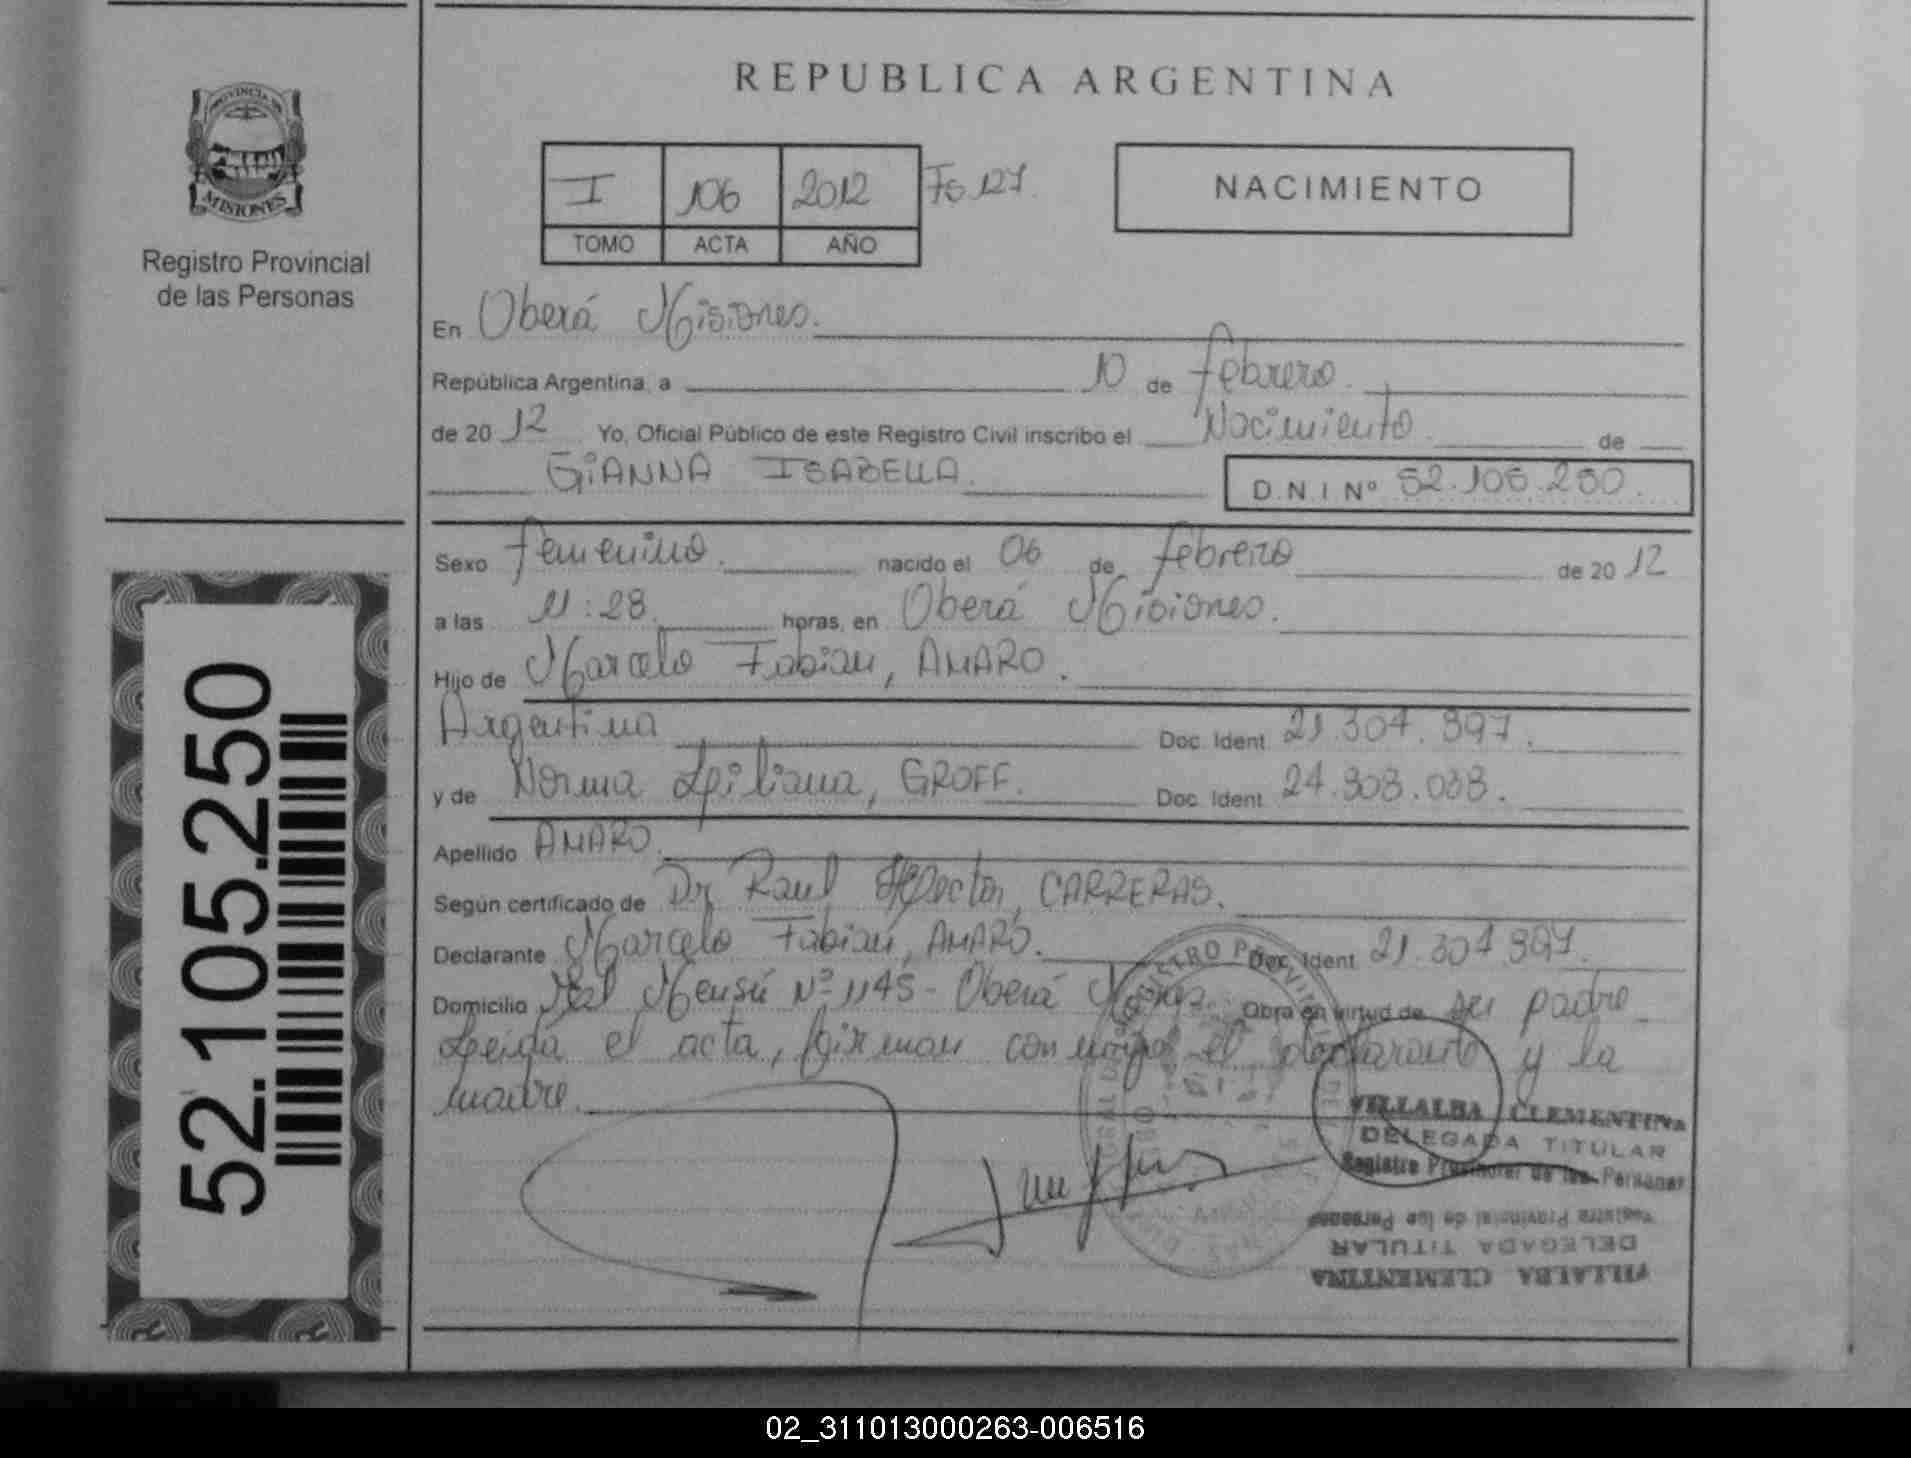 REPUBLICA ARGENTINA
PROVINCIA DE
MISIONES
Registro Provincial
de las Personas
I 106 2012 Fs 127.
TOMO ACTA AÑO
NACIMIENTO
En Oberá Misiones.
República Argentina, a 10 de febrero.
de 20 12 Yo, Oficial Público de este Registro Civil inscribo el Nacimiento. de
GIANNA ISABELLA. D.N.I Nº 52.105.250.
Sexo femenino. nacido el 06 de febrero de 20 12
a las 11:28. horas, en Oberá Misiones.
Hijo de Marcelo Fabian, AMARO.
Argentina Doc. Ident. 21.307.397.
y de Norma Liliana, GROFF. Doc. Ident. 24.303.038.
Apellido AMARO.
Según certificado de Dr Raul Hector, CARRERAS.
Declarante Marcelo Fabian, AMARO. Doc. Ident. 21.307.397.
Domicilio El Mensú Nº 1145 - Oberá Obra en virtud de su padre
Leida el acta, firman conmigo el declarante y la
madre.
VILLALBA CLEMENTINA
DELEGADA TITULAR
Registro Provincial de las Personas
Registro Provincial de las Personas
DELEGADA TITULAR
VILLALBA CLEMENTINA
52.105.250
02_311013000263-006516